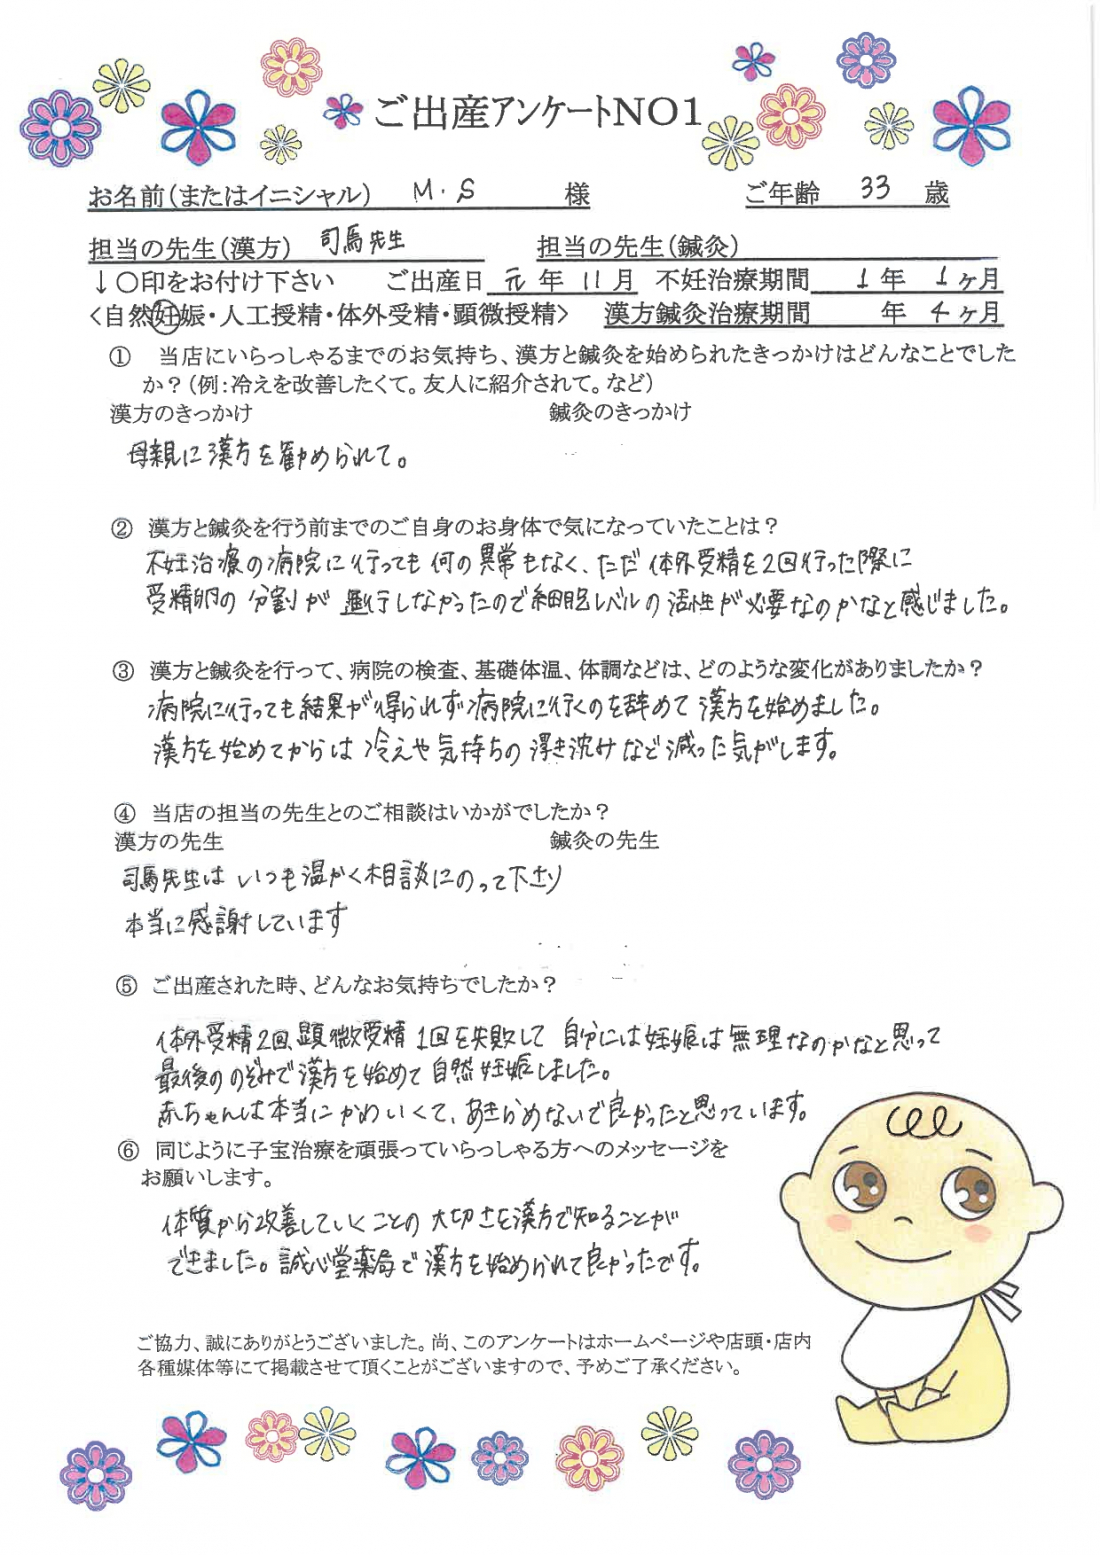 ご出産アンケートNO1
お名前(またはイニシャル) M.S 様 ご年齢 33 歳
担当の先生(漢方) 司馬先生 担当の先生(鍼灸)
↓○印をお付け下さい ご出産日 元 年 11 月 不妊治療期間 1 年 1 ヶ月
<自然妊娠・人工授精・体外受精・顕微授精> 漢方鍼灸治療期間 年 4 ヶ月
① 当店にいらっしゃるまでのお気持ち、漢方と鍼灸を始められたきっかけはどんなことでした
か?(例:冷えを改善したくて。友人に紹介されて。など)
漢方のきっかけ 鍼灸のきっかけ
母親に漢方を勧められて。
② 漢方と鍼灸を行う前までのご自身のお身体で気になっていたことは?
不妊治療の病院に行っても何の異常もなく、ただ体外受精を2回行った際に
受精卵の分割が進行しなかったので細胞レベルの活性が必要なのかなと感じました。
③ 漢方と鍼灸を行って、病院の検査、基礎体温、体調などは、どのような変化がありましたか?
病院に行っても結果が得られず病院に行くのを辞めて漢方を始めました。
漢方を始めてからは冷えや気持ちの浮き沈みなど減った気がします。
④ 当店の担当の先生とのご相談はいかがでしたか?
漢方の先生 鍼灸の先生
司馬先生はいつも温かく相談にのって下さり
本当に感謝しています
⑤ ご出産された時、どんなお気持ちでしたか?
体外受精2回、顕微受精1回を失敗して自分には妊娠は無理なのかなと思って
最後ののぞみで漢方を始めて自然妊娠しました。
赤ちゃんは本当にかわいくて、あきらめないで良かったと思っています。
⑥ 同じように子宝治療を頑張っていらっしゃる方へのメッセージを
お願いします。
体質から改善していくことの大切さを漢方で知ることが
できました。誠心堂薬局で漢方を始められて良かったです。
ご協力、誠にありがとうございました。尚、このアンケートはホームページや店頭・店内
各種媒体等にて掲載させて頂くことがございますので、予めご了承ください。